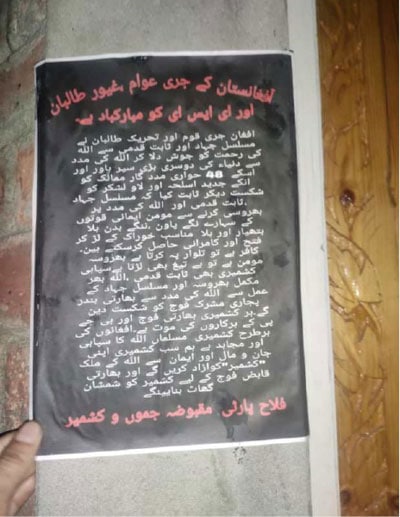 افغانستان کے جری عوام ,غیور طالبان
اور ای ایس ای کو مبارکباد ہے۔
افغان جری قوم اور تحریک طالبان نے
مسلسل جہاد اور ثابت قدمی سے اللہ
کی رحمت کو جوش دلا کر اللہ کی مدد
سے دنیاء کی دوسری بڑی سپر پاور اور
اسکے 48 حواری مدد گار ممالک کو
انکے جدید اسلحہ اور لاو لشکر کو
شکست دیکر ثابت کیا کہ مسلسل جہاد
,ثابت قدمی اور اللہ کی مدد پر
بھروسہ کرنے سے مومن ایمانی قوتوں
کے سہارے ننگے پاوں ,ننگے بدن بلا
ہتھیار اور بلا مناسب خوراک کے لڑ کر
فتح اور کامرانی حاصل کرسکتے ہیں۔
کافر ہے تو تلوار پہ کرتا ہے بھروسہ
مومن ہے تو بے تیغ بھی لڑتا ہےسپاہی
کشمیری بھی ثابت قدمی ,اللہ پھر
مکمل بھروسہ اور مسلسل جہاد کے
عمل سے اللہ کی مدد سے بھارتی بندر
پجاری مشرک فوج کو شکست دیں
گے۔ہر کشمیری بھارتی فوج اور بی جے
پی کے ہرکاروں کی موت ہے۔افغانوں کی
ہرطرح کشمیری مسلماں اللہ کا سپاہی
اور مجاہد ہے ہم سب کشمیری اپنی
جان و مال اور ایمان سے اللہ کے ملک
"کشمیر"کوازاد کریں گے اور بھارتی
قابض فوج کے لیے کشمیر کو شمشان
گھاٹ بناہینگے
فلاح پارٹی مقبوضہ جموں و کشمیر